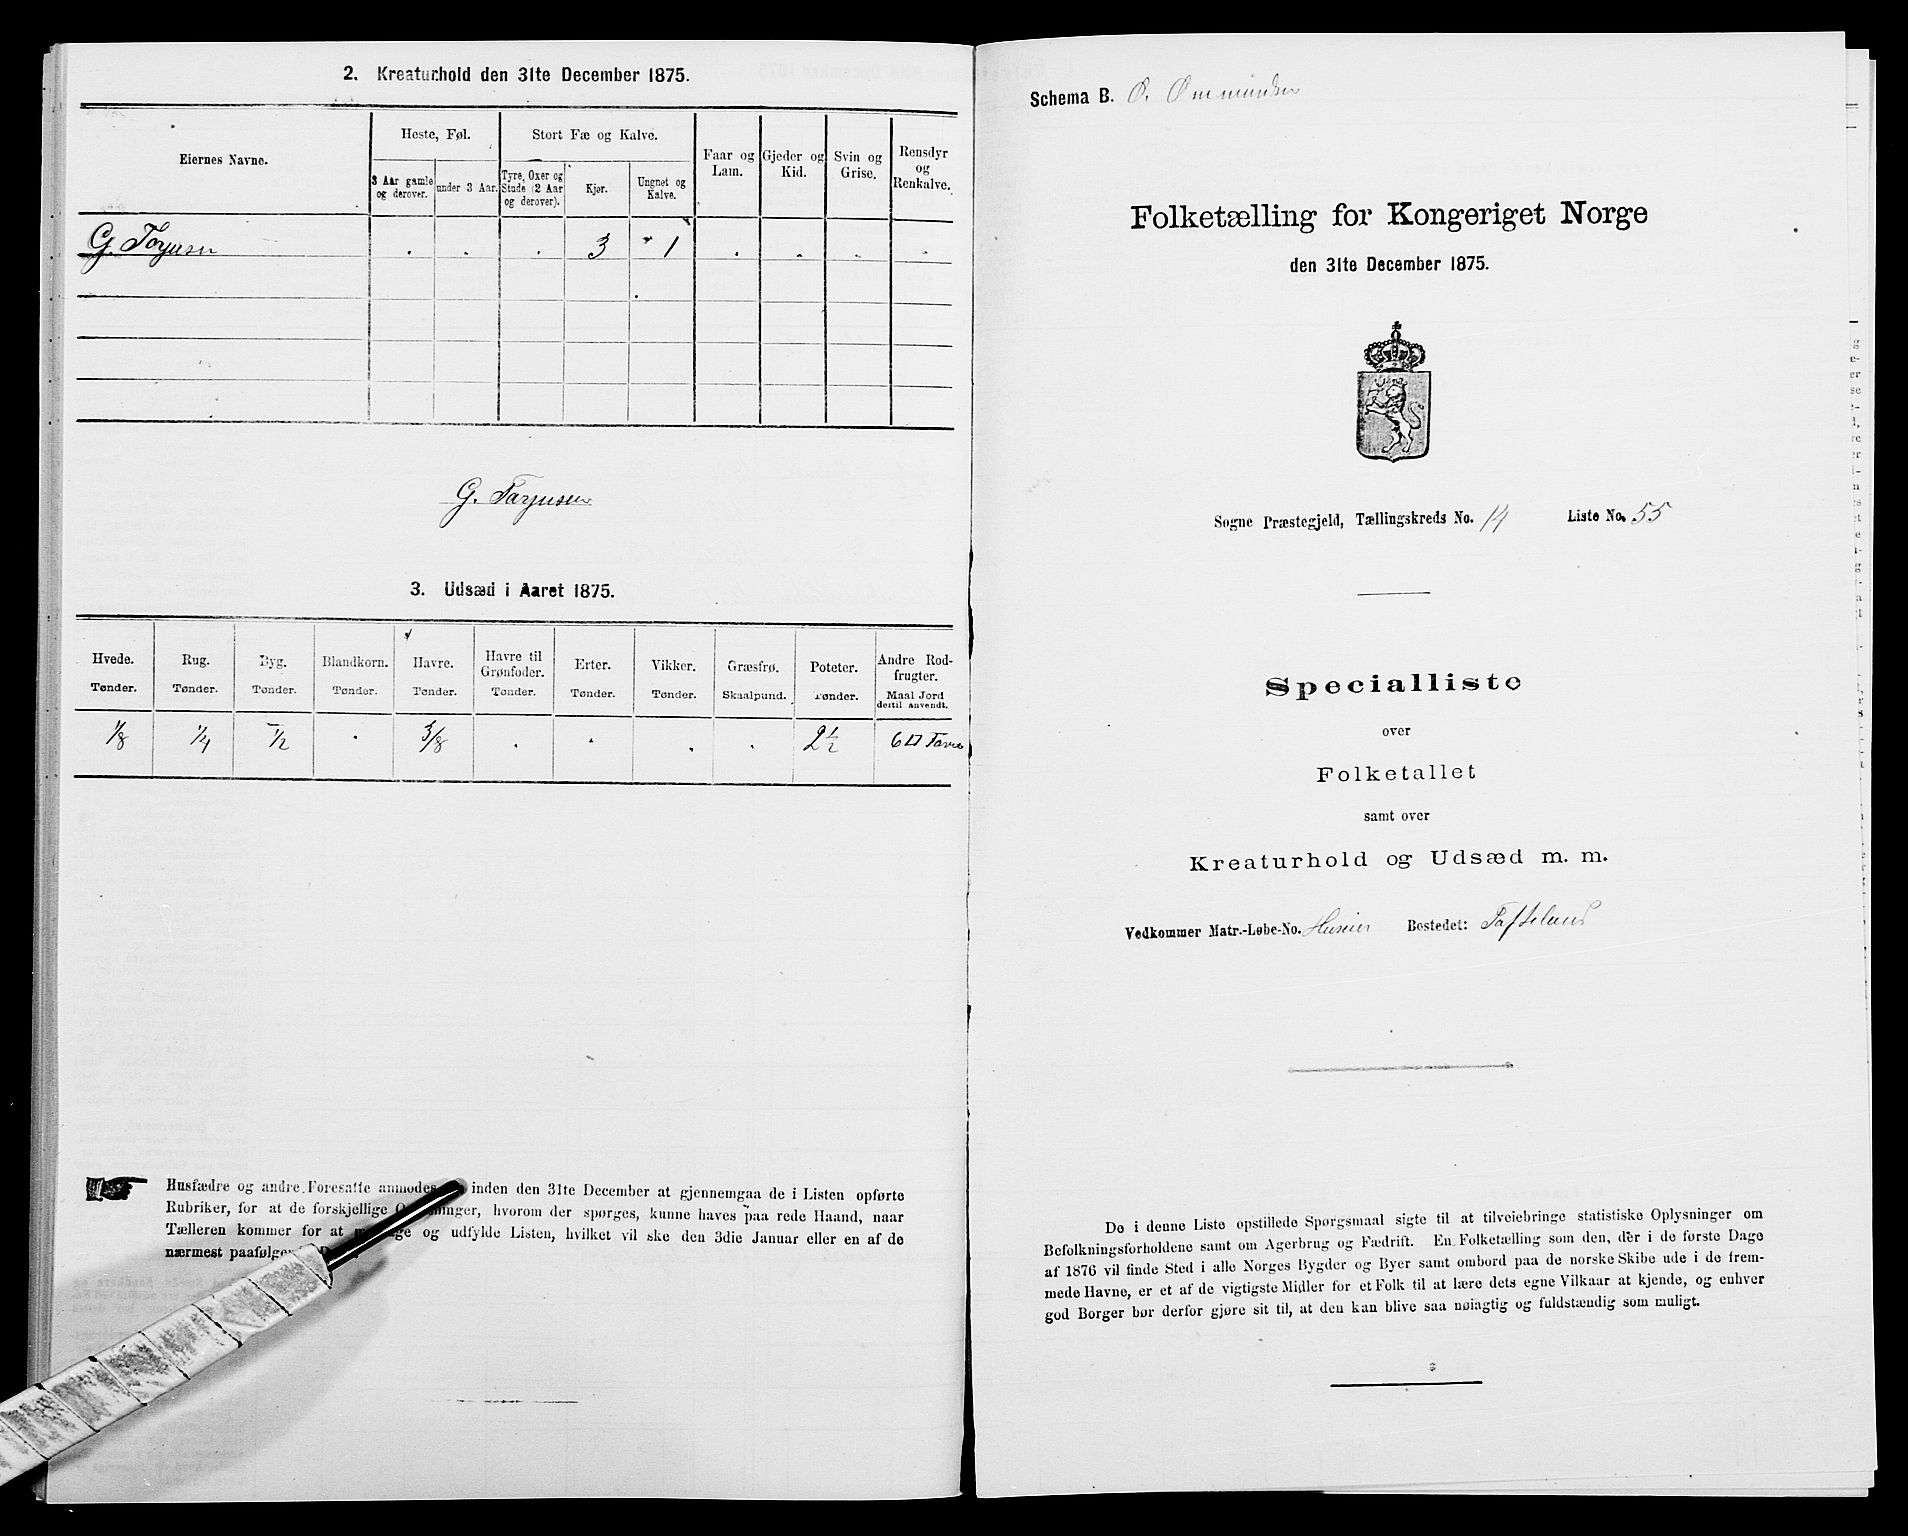 2. Kreaturhold den 31te December 1875.
Eiernes Navne.
Heste, Føl.
Stort Fæ og Kalve.
Faar og Lam.
Gjeder og Kid.
Svin og Grise.
Rensdyr og Renkalve.
3 Aar gamle og derover.
under 3 Aar.
Tyre, Oxer og Stude (2 Aar og derover).
Kjør.
Ungnet og Kalve.
G. Torjusen . . . 3 1 . . . .
G. Torjusen
3. Udsæd i Aaret 1875.
Hvede. Rug. Byg. Blandkorn. Havre. Havre til Grønfoder. Erter. Vikker. Græsfrø. Poteter. Andre Rodfrugter.
Tønder. Tønder. Tønder. Tønder. Tønder. Tønder. Tønder. Tønder. Skaalpund. Tønder. Maal Jord dertil anvendt.
1/8 1/4 1/2 . 3/8 . . . . 2 1/2 6 □ Favne
Husfædre og andre Foresatte anmodes inden den 31te December at gjennemgaa de i Listen opførte
Rubriker, for at de forskjellige hvorom der spørges, kunne haves paa rede Haand, naar
Tælleren kommer for at og udfylde Listen, hvilket vil ske den 3die Januar eller en af de
nærmest paafølgende
Schema B. Ø. Ommundsen
Folketælling for Kongeriget Norge
den 31te December 1875.
Sogne Præstegjeld, Tællingskreds No. 14 Liste No. 55
Specialliste
over
Folketallet
samt over
Kreaturhold og Udsæd m. m.
Vedkommer Matr.-Løbe-No. Huseier Bostedet: Tofteland
De i denne Liste opstillede Spørgsmaal sigte til at tilveiebringe statistiske Oplysninger om
Befolkningsforholdene samt om Agerbrug og Fædrift. En Folketælling som den, der i de første Dage
af 1876 vil finde Sted i alle Norges Bygder og Byer samt ombord paa de norske Skibe ude i de frem-
mede Havne, er et af de vigtigste Midler for et Folk til at lære dets egne Vilkaar at kjende, og enhver
god Borger bør derfor gjøre sit til, at den kan blive saa nøiagtig og fuldstændig som muligt.